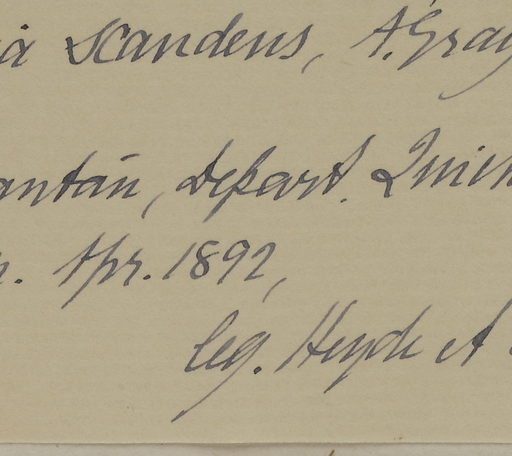 ia scandens, A. Gray
antán, Depart. Quich
Apr. 1892,
leg. Heyde et